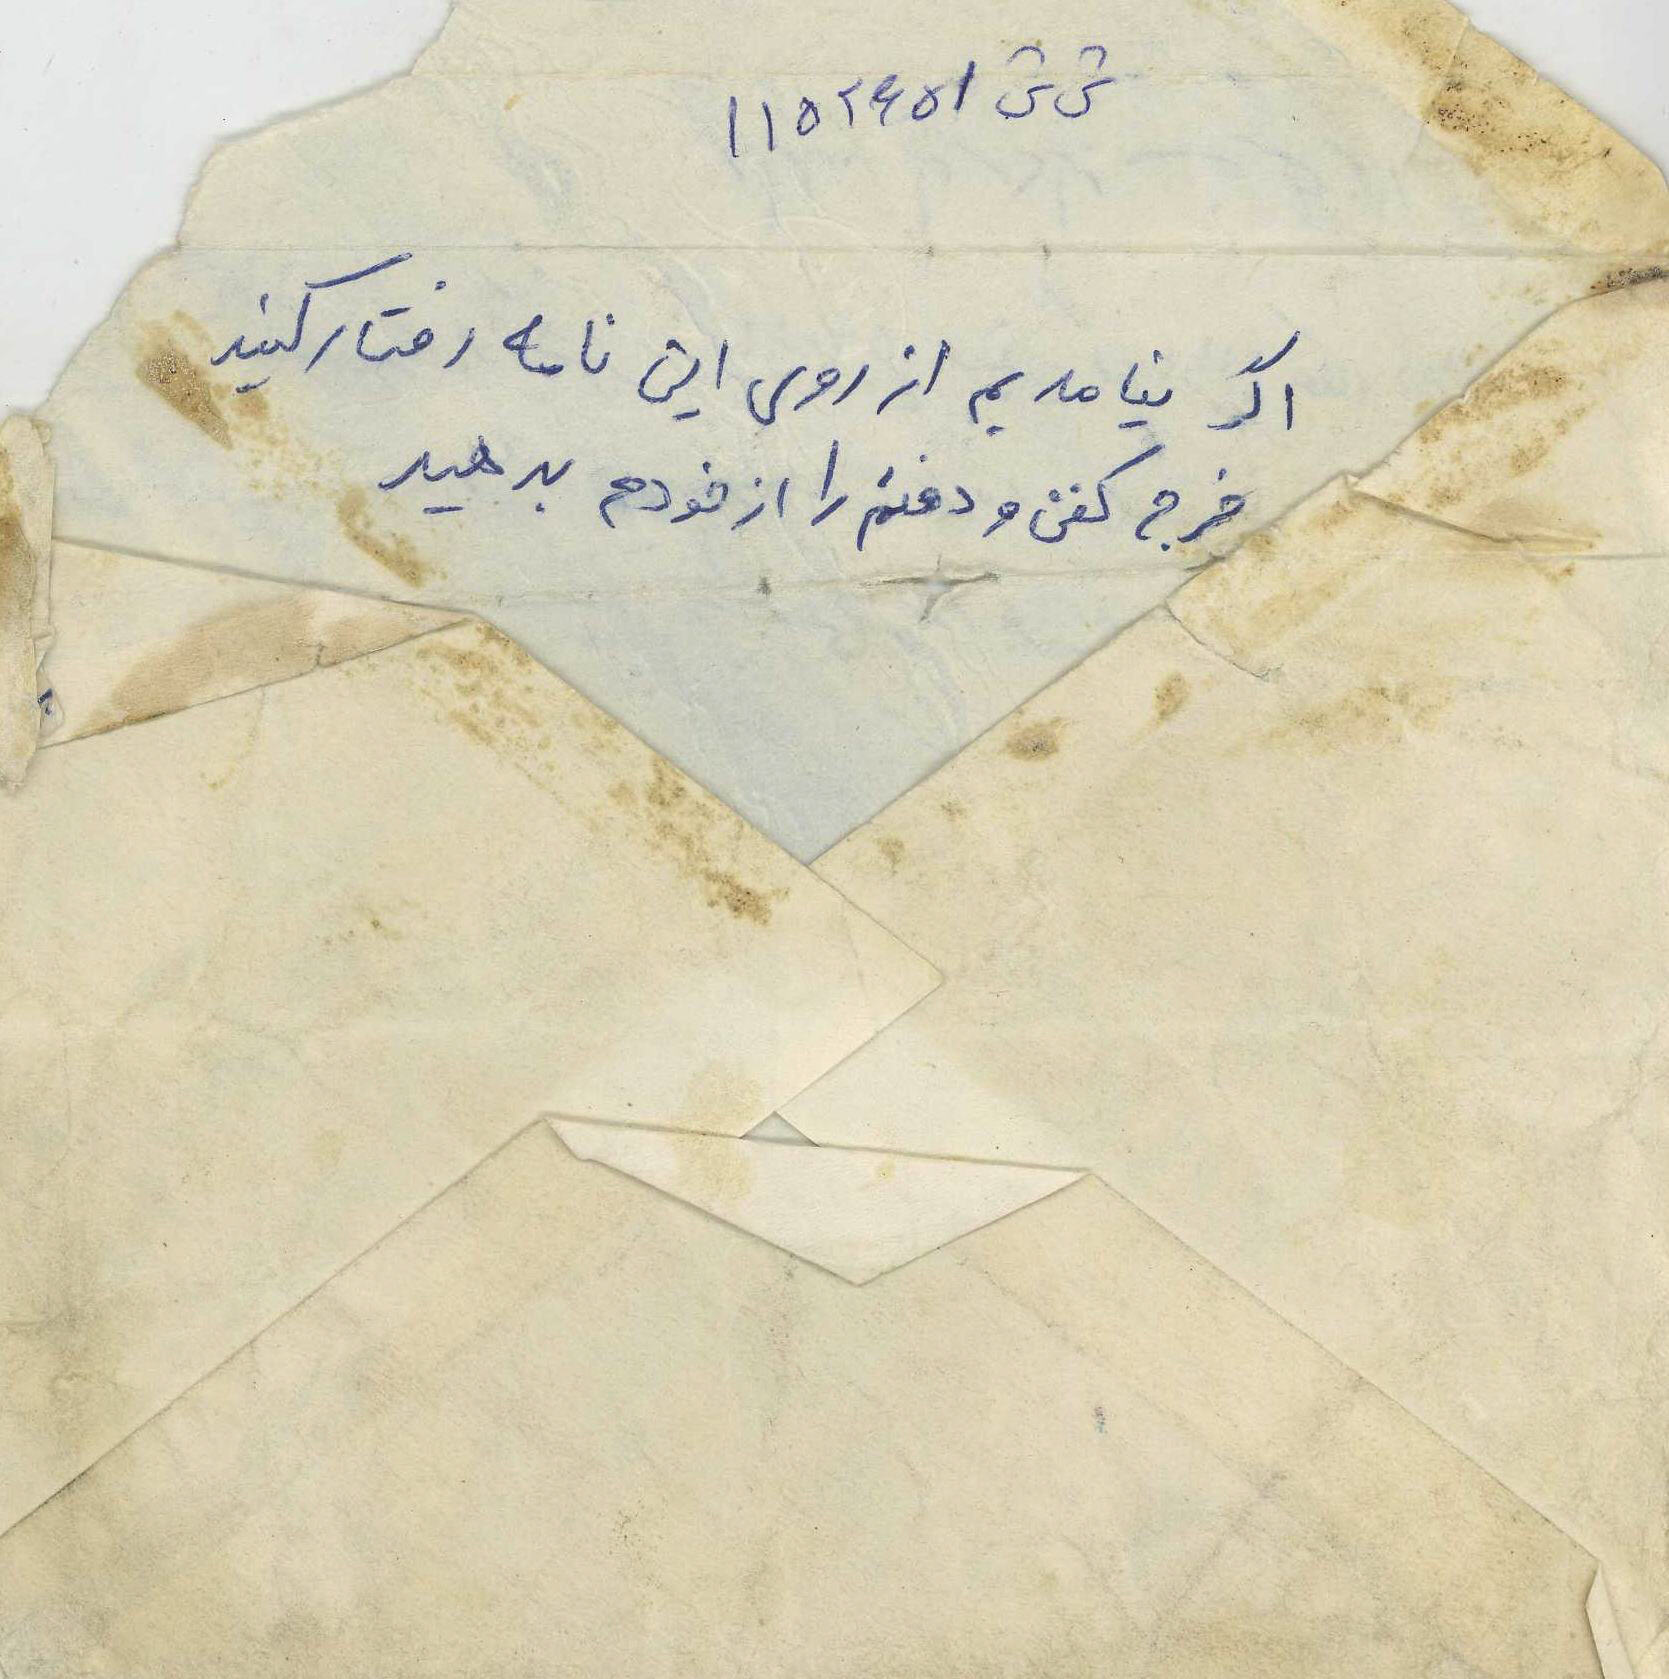 ش ش ۱۱۵۲۶۵۱
اگر نیامدیم از روی این نامه رفتار کنید
خرج کفن و دفنم را از خودم بدهید